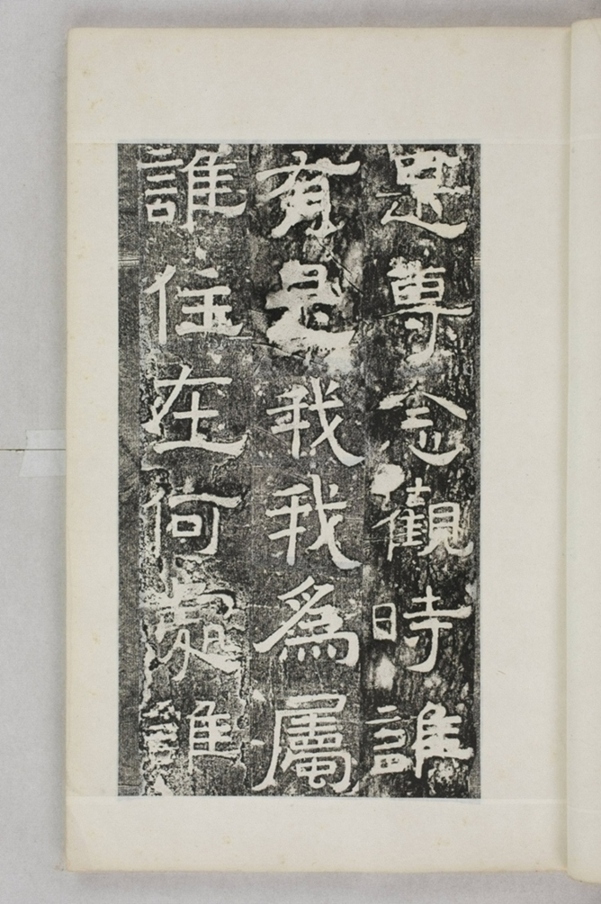 是尊念觀時誰
有是我我為屬
誰住在何處誰